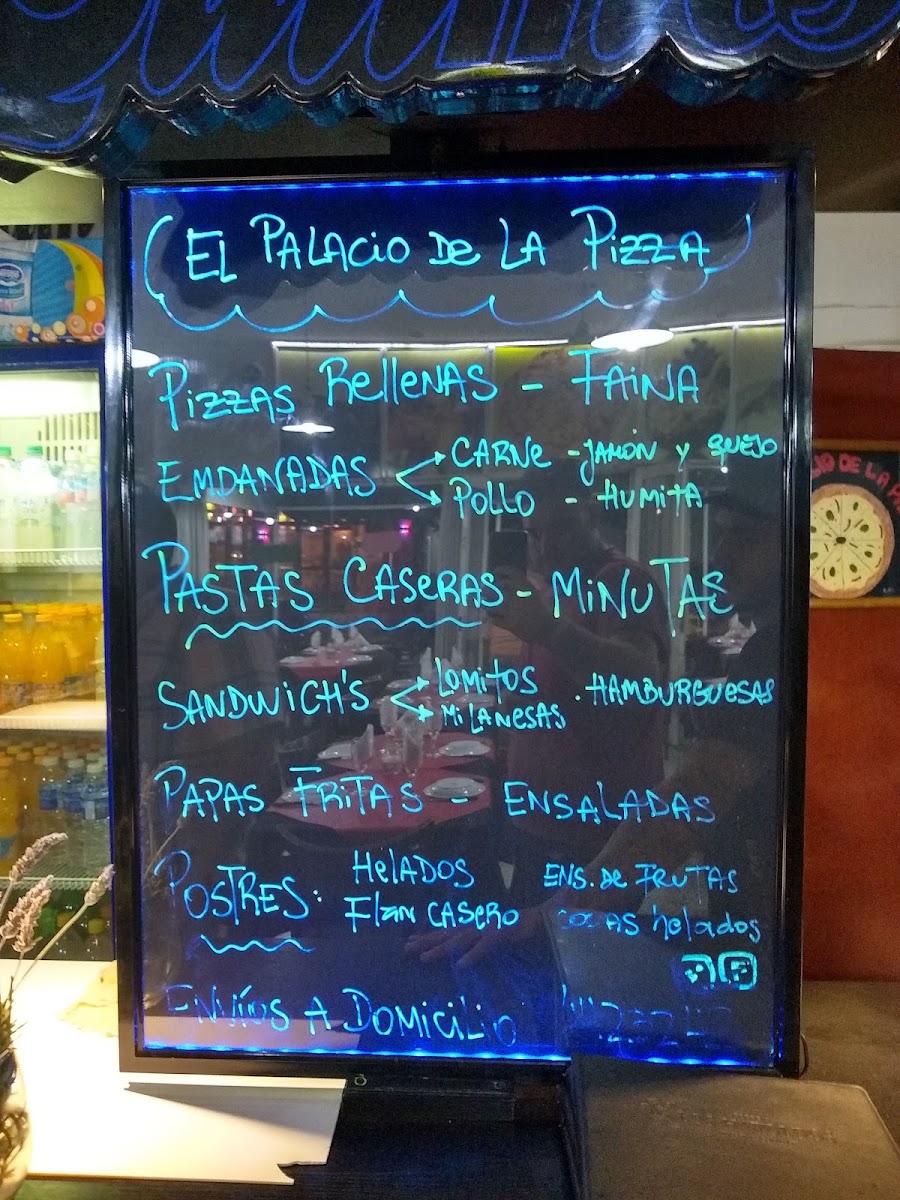 EL PALACIO DE LA PIZZA
PIZZAS RELLENAS - FAINA
EMPANADAS CARNE - JAMÓN Y QUEJO
POLLO - HUMITA
PASTAS CASERAS - MINUTAS
SANDWICH'S LOMITOS · HAMBURGUESAS
MILANESAS
PAPAS FRITAS - ENSALADAS
POSTRES: HELADOS ENS. DE FRUTAS
Flan CASERO COPAS helados
ENVÍOS A DOMICILIO
DE LA